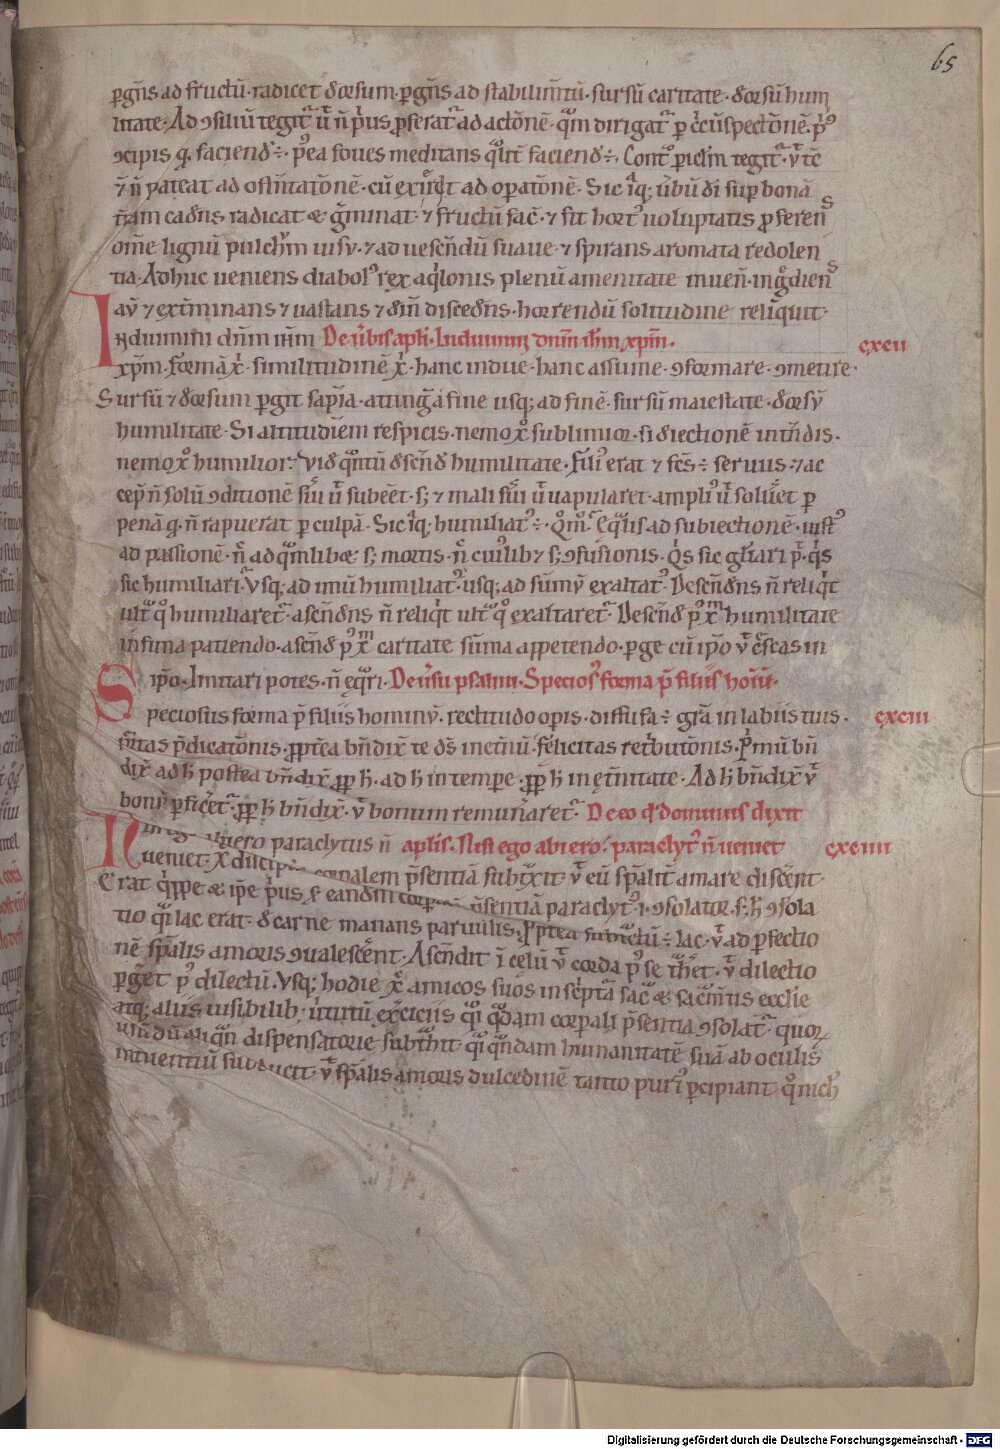 65
p̱gñs ad fructū· radicet deorsum· p̱gñs ad stabilim̄tū· sursū caritate· deorsū hum
litate· Ad ꝯsiliū tegit᷑ ū ñ p̓us ꝓferat᷑ ad actōnē·
ꝯcipis q· faciend÷· p̓ea foues meditans faciend÷·
ñ pateat ad ostn̄tatōnē· cū ad oꝑatōnē· Sic ub̄u di suꝑ bonā
t̄ram cadn̄s radicat & gm̄inat· ⁊ fructū fac̄· ⁊ fit hort᷒ uoluptatis ꝓferens
om̄e lignū pulch̄m uisu· ⁊ ad uescn̄dū suaue· ⁊ spirans aromata redolen
tia· Adhuc ueniens diabol᷒ rex aq̇lonis plenū amenitate inuen̄·
⁊ ext̄minans ⁊ uastans ⁊ discedn̄s· horrendū solitudine reliquit·
Induimini dn̄m ih̄m De ūbis apl̄i· Induimini dn̄m ih̄m xp̄m·
cxcii
xp̄m· formā x̄· similitudinē x̄· hanc indue· hanc assume· ꝯformare· ꝯmetire·
Sursū ⁊ deorsum ꝑgit sap̄ia· attingēs a fine usq; ad finē· sursū maiestate· deorsū
humilitate· Si altitudinem respicis· nemo x̄ sublimior· si deiectionē intn̄dis·
nemo x̄ humilior· Vid q̄ntū dscn̄d humilitate· fili᷒ erat ⁊ fc̄s÷ seruus· ⁊ ac
cep̄ ñ solū ꝯditionē sūi ū subēet· s; ⁊ mali sūi ū uapularet· ampli᷒ ū soluet ꝑ
penā q· ñ rapuerat ꝑ culpā· Sic iq; humiliat᷒÷· Eq̄lis ad subiectionē· iust᷒
ad passionē· ñ ad q̄mlibet s; mortis· ñ cui᷒lib& s; ꝯfusionis· Q̇s sic gl̄iari p̄· q̇s
sic humiliari· Vsq; ad imū humiliat᷒· usq; ad sūmū exaltat᷒· Descn̄dns ñ reliq̇t
ult̄ q̊ humiliaret᷑· ascn̄dns ñ reliq̇t ult̄ q̊ exaltaret᷑· Descn̄d p᷒ x̄m humilitate
infima patiendo· ascn̄d p᷒ x̄m caritate sūma appetendo· ꝑge cū ip̄o ū c̄scas in
ip̄o· Imitari potes· ñ eq̄ri· De ūsu psalmi· Specios᷒ forma p̄ filiis hoīū·
Speciosus forma p̄ filiis hominū· rectitudo opis· diffusa÷ gr̄a in labiis tuis·
cxciii
p̄dicatōnis· ꝓpt̄ea bn̄dix̄ te ds̄ inet̄nū· felicitas ret̓butōnis· P̓mū bn̄
dix̄ ad h̄ postea bn̄dix̄ ꝓp̄ h̄· ad h̄ in tempe· ꝓp̄ h̄ in et̄nitate· Ad h̄ bn̄dix̄ ū
bonū ꝑficet᷑· ꝓp̄ h̄ bn̄dix̄· ū bonum remun̄aret᷑· De eo qd̄ dominus dixit
abiero paraclytus ñ apl̄is· Nisi ego abiero· paraclyt᷒ ñ ueniet
cxciiii
ueniet· x̄ discip p̄sentiā subtx̄it ū eū sp̄alit̄ amare discēnt·
Erat q̇ppe & ip̄e p̓us s& eandm̄ p̄sentiā paraclyt᷒· i· ꝯsolator· s; h̄ ꝯsola
tio q̄i lac erat· d carne manans paruulis· ꝓpt̄ea subtctū÷ lac· ū ad ꝑfectio
nē sp̄alis amoris ꝯualescēnt· Ascn̄dit ī celū ū corda p᷒ se th̄et· ū dilectio
ꝑget p᷒ dilectū· Vsq; hodie x̄ amicos suos in sc̓ptā sac̄ & sacm̄tis ecclie
atq; aliis uisibilib; ūtutū exc̄iciis q̄i q̄dam corporali p̄sentia ꝯsolat᷑· quor
dispensatorie subt̄hit· q̄i q̄ndam humanitatē suā ab oculis
intuentiū subducit· ū sp̄alis amoris dulcedinē tanto puri᷒ ꝑcipiant q̊ nich
Digitalisierung gefördert durch die Deutsche Forschungsgemeinschaft - DFG